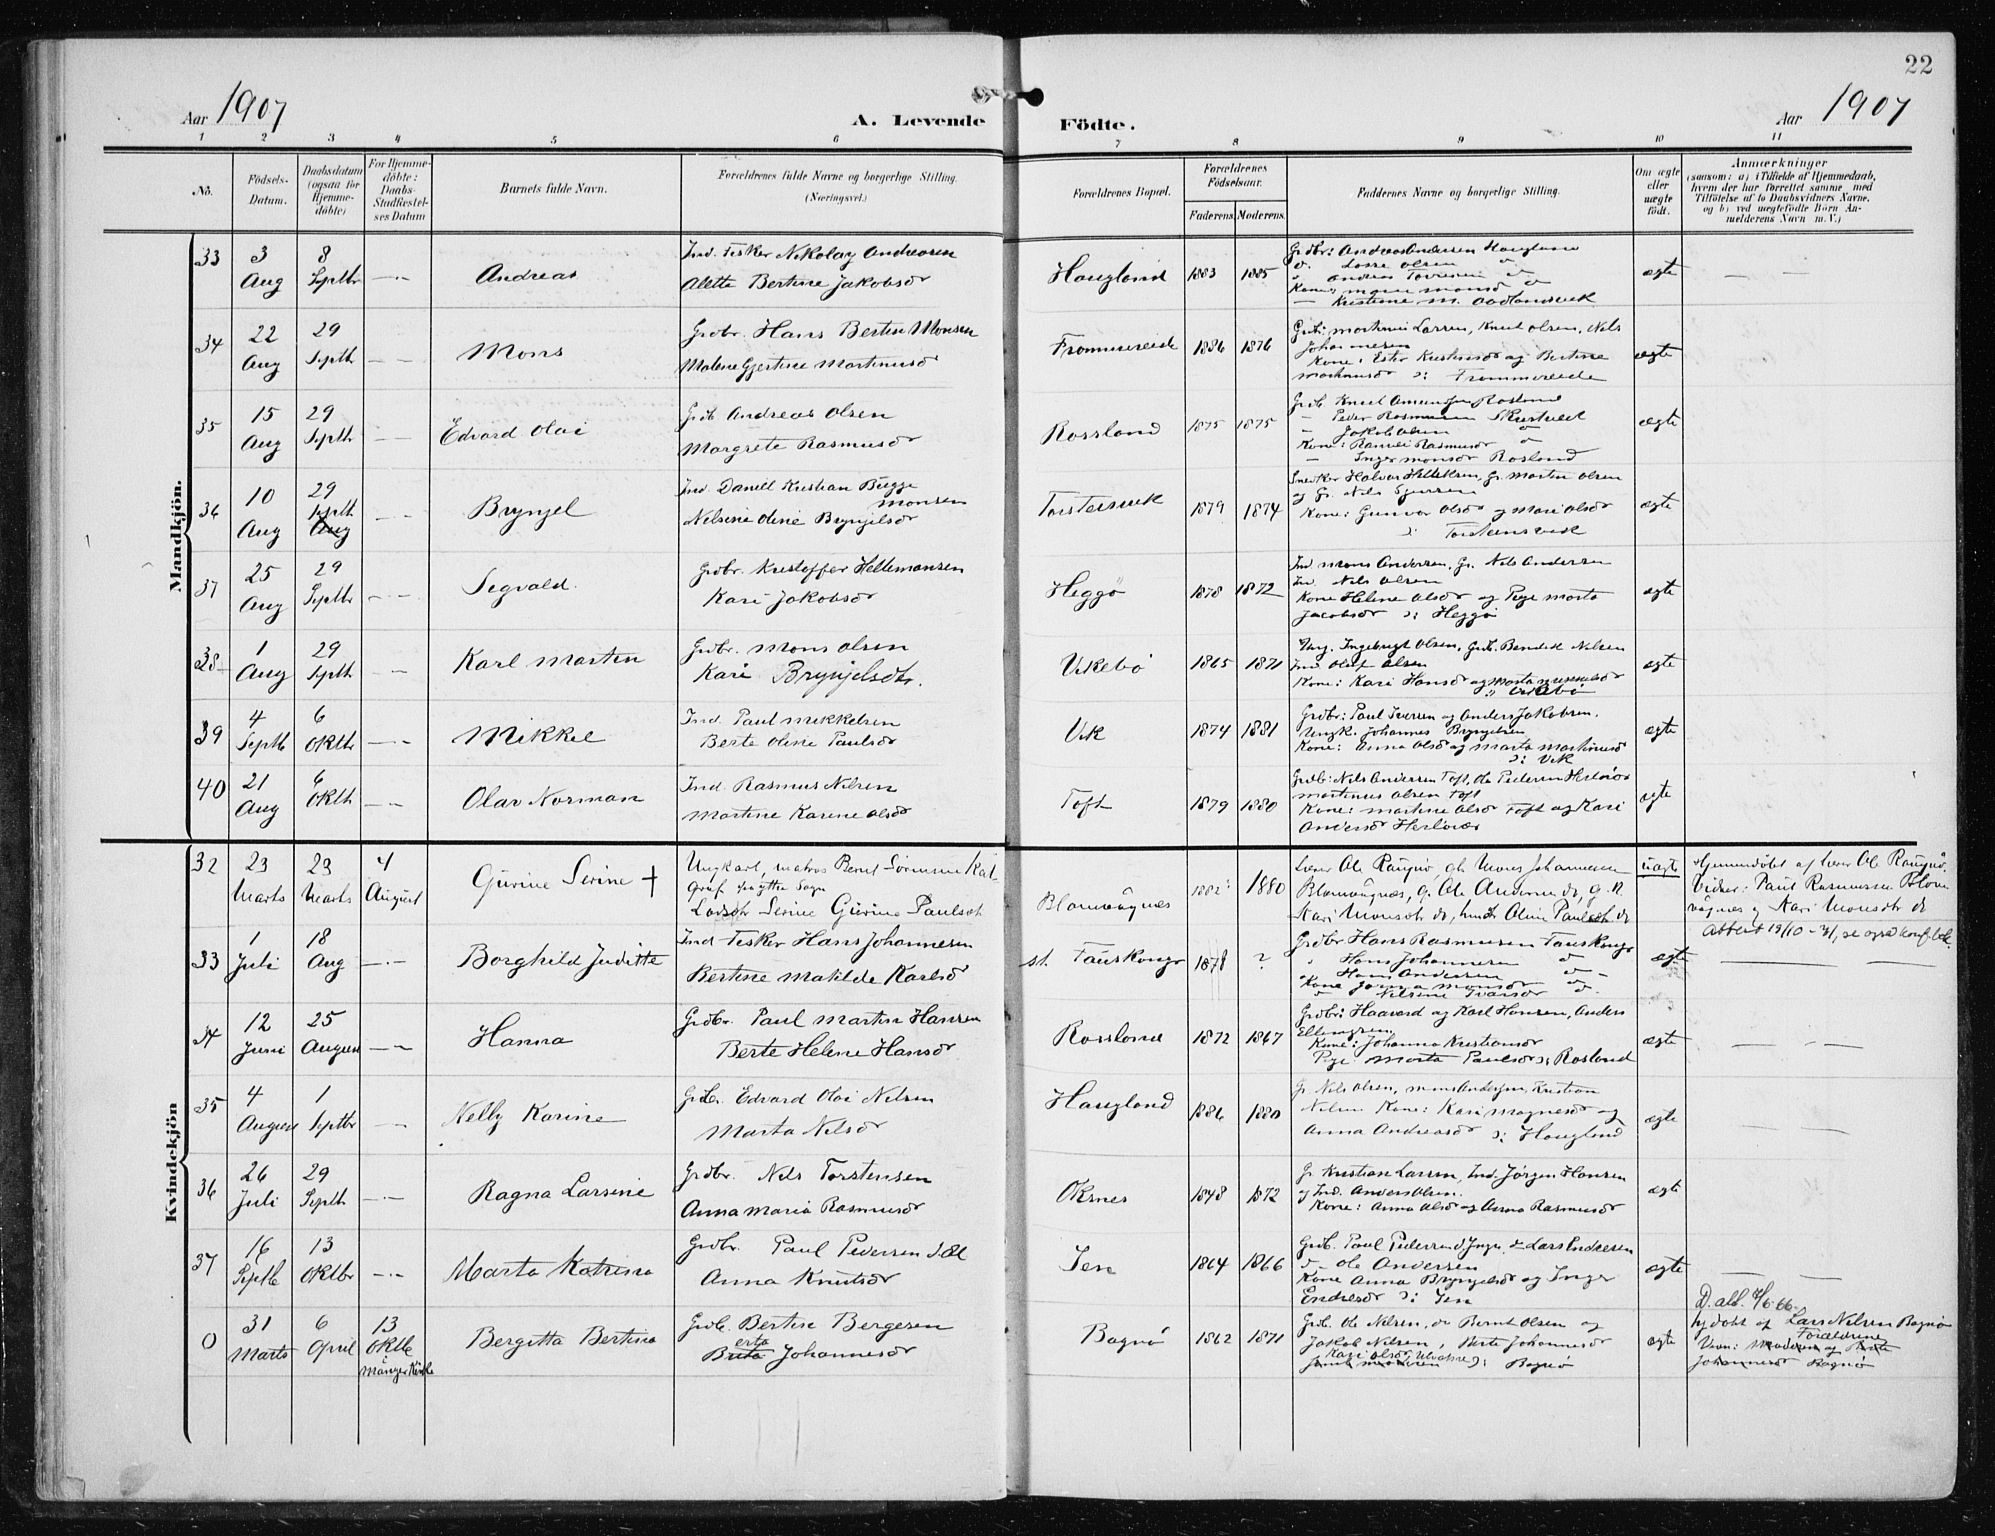 22
Aar 1907
A. Levende Födte.
Aar 1907
1 2 3 4 5 6 7 8 9 10 11
No.
Födsels-Datum.
Daabsdatum (ogsaa for Hjemme-döbte)
For Hjemme-döbte: Daabs-Stadfæstel-ses Datum
Barnets fulde Navn.
Forældrenes fulde Navne og borgerlige Stilling. (Næringsvei.)
Forældrenes Bopæl.
Forældrenes Födselsaar.
Faderens. Moderens.
Faddernes Navne og borgerlige Stilling.
Om ægte eller uægte födt.
Anmærkninger
(saasom: a) i Tilfælde af Hjemmedaab,
hvem der har forrettet samme med
Tilföielse af to Daabsvidners Navne.
og b) ved uægtefödte Börn An-
melderens Navn m. V.)
Mandkjön.
33 3 Aug 8 Septbr Andreas
Ind. Fisker Nikolay Andreasen
Alette Bertine Jakobsdr
Haugland 1883 1885
Grdbr: Andreas Andersen Haugland
Kone: 
Kristine M. Aadlandsvik
ægte
34 22 Aug 29 Septb Mons
Grdbr. Hans Bertin Monsen
Malene Gjertine Martinusdr
Frommereide 1886 1876
Grdb: Martinus Larsen, Knut Olsen, Nils
Johannesen
Kone: Ester Kristensdr og Bertine
Martinusdr D: Frommereide
ægte
35 15 Aug 29 Septb Edvard Olai
Grdb Andreas Olsen
Margrete Rasmusdr
Rossland 1875 1875
Grdb. Knut Amundsen Rosland
- Peder Rasmussen
- Jakob Olsen
Kone: Rasmusdr
- Inger Monsdr Rosland
ægte
36 10 Aug 29 Septb Aug Brynjel
Ind. Daniel Kristian Bugge
Monsen
Nelsine Oline Brynjelsdr
Torstensvik 1879 1874
Snedker Halvor Gr. Morten Olsen
og Gr. Nils
Kone: Gunvor Olsdr og Mari Olsdr
D: Torstensvik
ægte
37 25 Aug 29 Septbr Segvald.
Grdbr. Kristoffer Hellemansen
Kari Jakobsdr
Heggö 1878 1872
Ind Mons Andersen, Gr. Nils Andersen
Ind. Nils Olsen
Kone Helene Olsdr og Pige Marta
Jacobsdr D: Heggö
ægte
38 1 Aug 29 Septb Karl Martin
Grdbr. Mons Olsen
Kari Brynjelsdtr.
Vikebö 1865 1871
Ung. Ingebrigt Olsen, Grdb. Bendik Nilsen
Ind Oluf Olsen
Kone: Kari Hansdr og Marta
D: Vikebö
ægte
39 4 Septb 6 Oktbr Mikkel
Ind. Paul Mikkelsen
Berte Oline Paulsdr
Vik 1874 1881
Grdbr: Paul Iversen og Anders Jakobsen.
Ungk. Johannes Brynjelsen
Kone: Anna Olsdr og Marta Martinusdr
D: Vik
ægte
40 21 Aug 6 Oktb Olav Norman
Ind. Rasmus Nilsen
Martine Karine Olsdr
Toft 1879 1880
Grdb: Nils Andersen Toft, Ole Pedersen Herlövær
Martinus Olsen Toft
Kone: Martine Olsdr Toft og Kari
Andersdr Herlövær
ægte
Kvindekjön
32 23 Marts 23 Marts 4 August Gurine Serine †
Ungkarl, matros Bernt Sörensen
Sogn
Lovise Serine Gurine Paulsdtr
Blomvågnes 1882 1880
Lærer Ole Raugnö, gb. Mons Johannesen
Blomvågnes, g. Ole Andersen ds, g. k
Kari Monsdtr ds, Oline Paulsdtr ds
uægte
Hjemmedöbt af lærer Ole Raugnö.
Vidner: Paul Rasmussen Blom-
vågnes og Kari Monsdtr ds
Attest 19/10 - 41, se også konf.bok
33 1 Juli 18 Aug Borghild Juditte
Ind Fisker Hans Johannesen
Bertine Matilde Karlsdr
st. Tauskongo 1878 ?
Grdbr Hans Rasmussen Tauskongo
" Hans Johannesen
" Hans Andersen
Kone Monsdr
- Nilsine Ivarsdr
ægte
34 12 Juni 25 August Hanna
Grdbr. Paul Martin Hansen
Berte Helene Hansdr
Rossland 1872 1867
Grdbr: Haavard og Karl Hansen, Anders
Ellingsen
Kone: Johanna Kristiansdr
Pige Marta Paulsdr D: Rosland
ægte
35 4 August 1 Septbr Nelly Karine
Grdb. Edvard Olai Nilsen
Marta Nilsdr
Haugland 1886 1880
Gr. Nils Olsen, Mons Andersen, Kristian
Nilsen Kone: Kari Magnesdr og
Anna Andreasdr D: Haugland
ægte
36 26 Juli 29 Septb Ragna Larsine
Grdbr. Nils Torstensen
Anna Maria Rasmusdr
Oksnes 1848 1872
Gr. Kristian Larsen, Ind. Jörgen Hansen
og Ind. Anders Olsen.
Kone: Anna Olsdr og Anna Rasmusdr
ægte
37 16 Septb 13 Oktbr Marta Katrina
Grdbr. Paul Pedersen d. Æl
Anna Knutsdr
Ien 1864 1866
Grdb. Paul Pedersen d Yngr. Lars Endresen
- Ole Andersen
Kone Anna Brynjelsdr og Inger
Endresdr D: Ien
ægte
0 31 Marts 6 April 13 Oktb Manger Kirke Bergitta Bertina
Grdb. Bertin Bergesen
Brita Johannesdr
Bognö 1862 1871
Grdb. Ole Nilsen, Bernt Olsen og
Jakob Nilsen, Berte Johannesdr
Kari Olsdr D: Bognö
ægte
D. att. 4/6-66.
hj.döbt af Lars Nilsen Bognö
Forældrene
Johannesdr Bognö